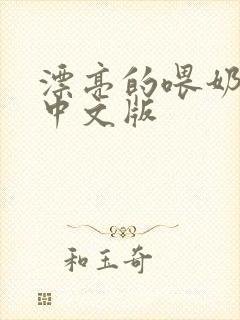 漂亮的喂奶
中文版
和玉奇